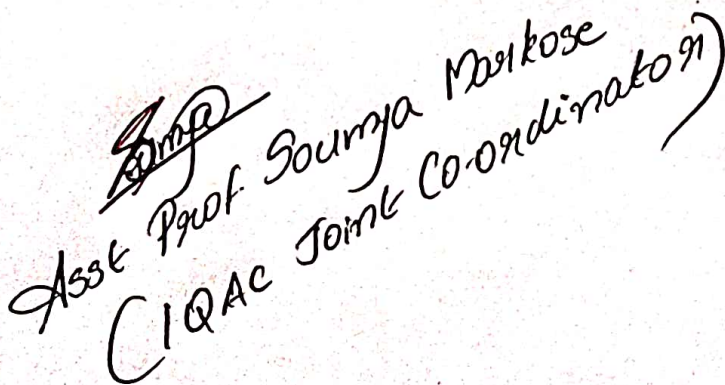 Soumya
Asst Prof. Soumya Markose
(IQAC Joint Co-ordinator)